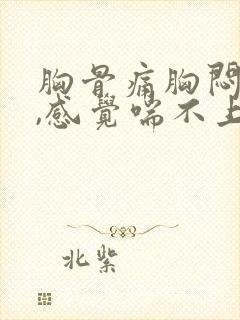 胸骨痛胸悶
,感覺喘不上
北紫